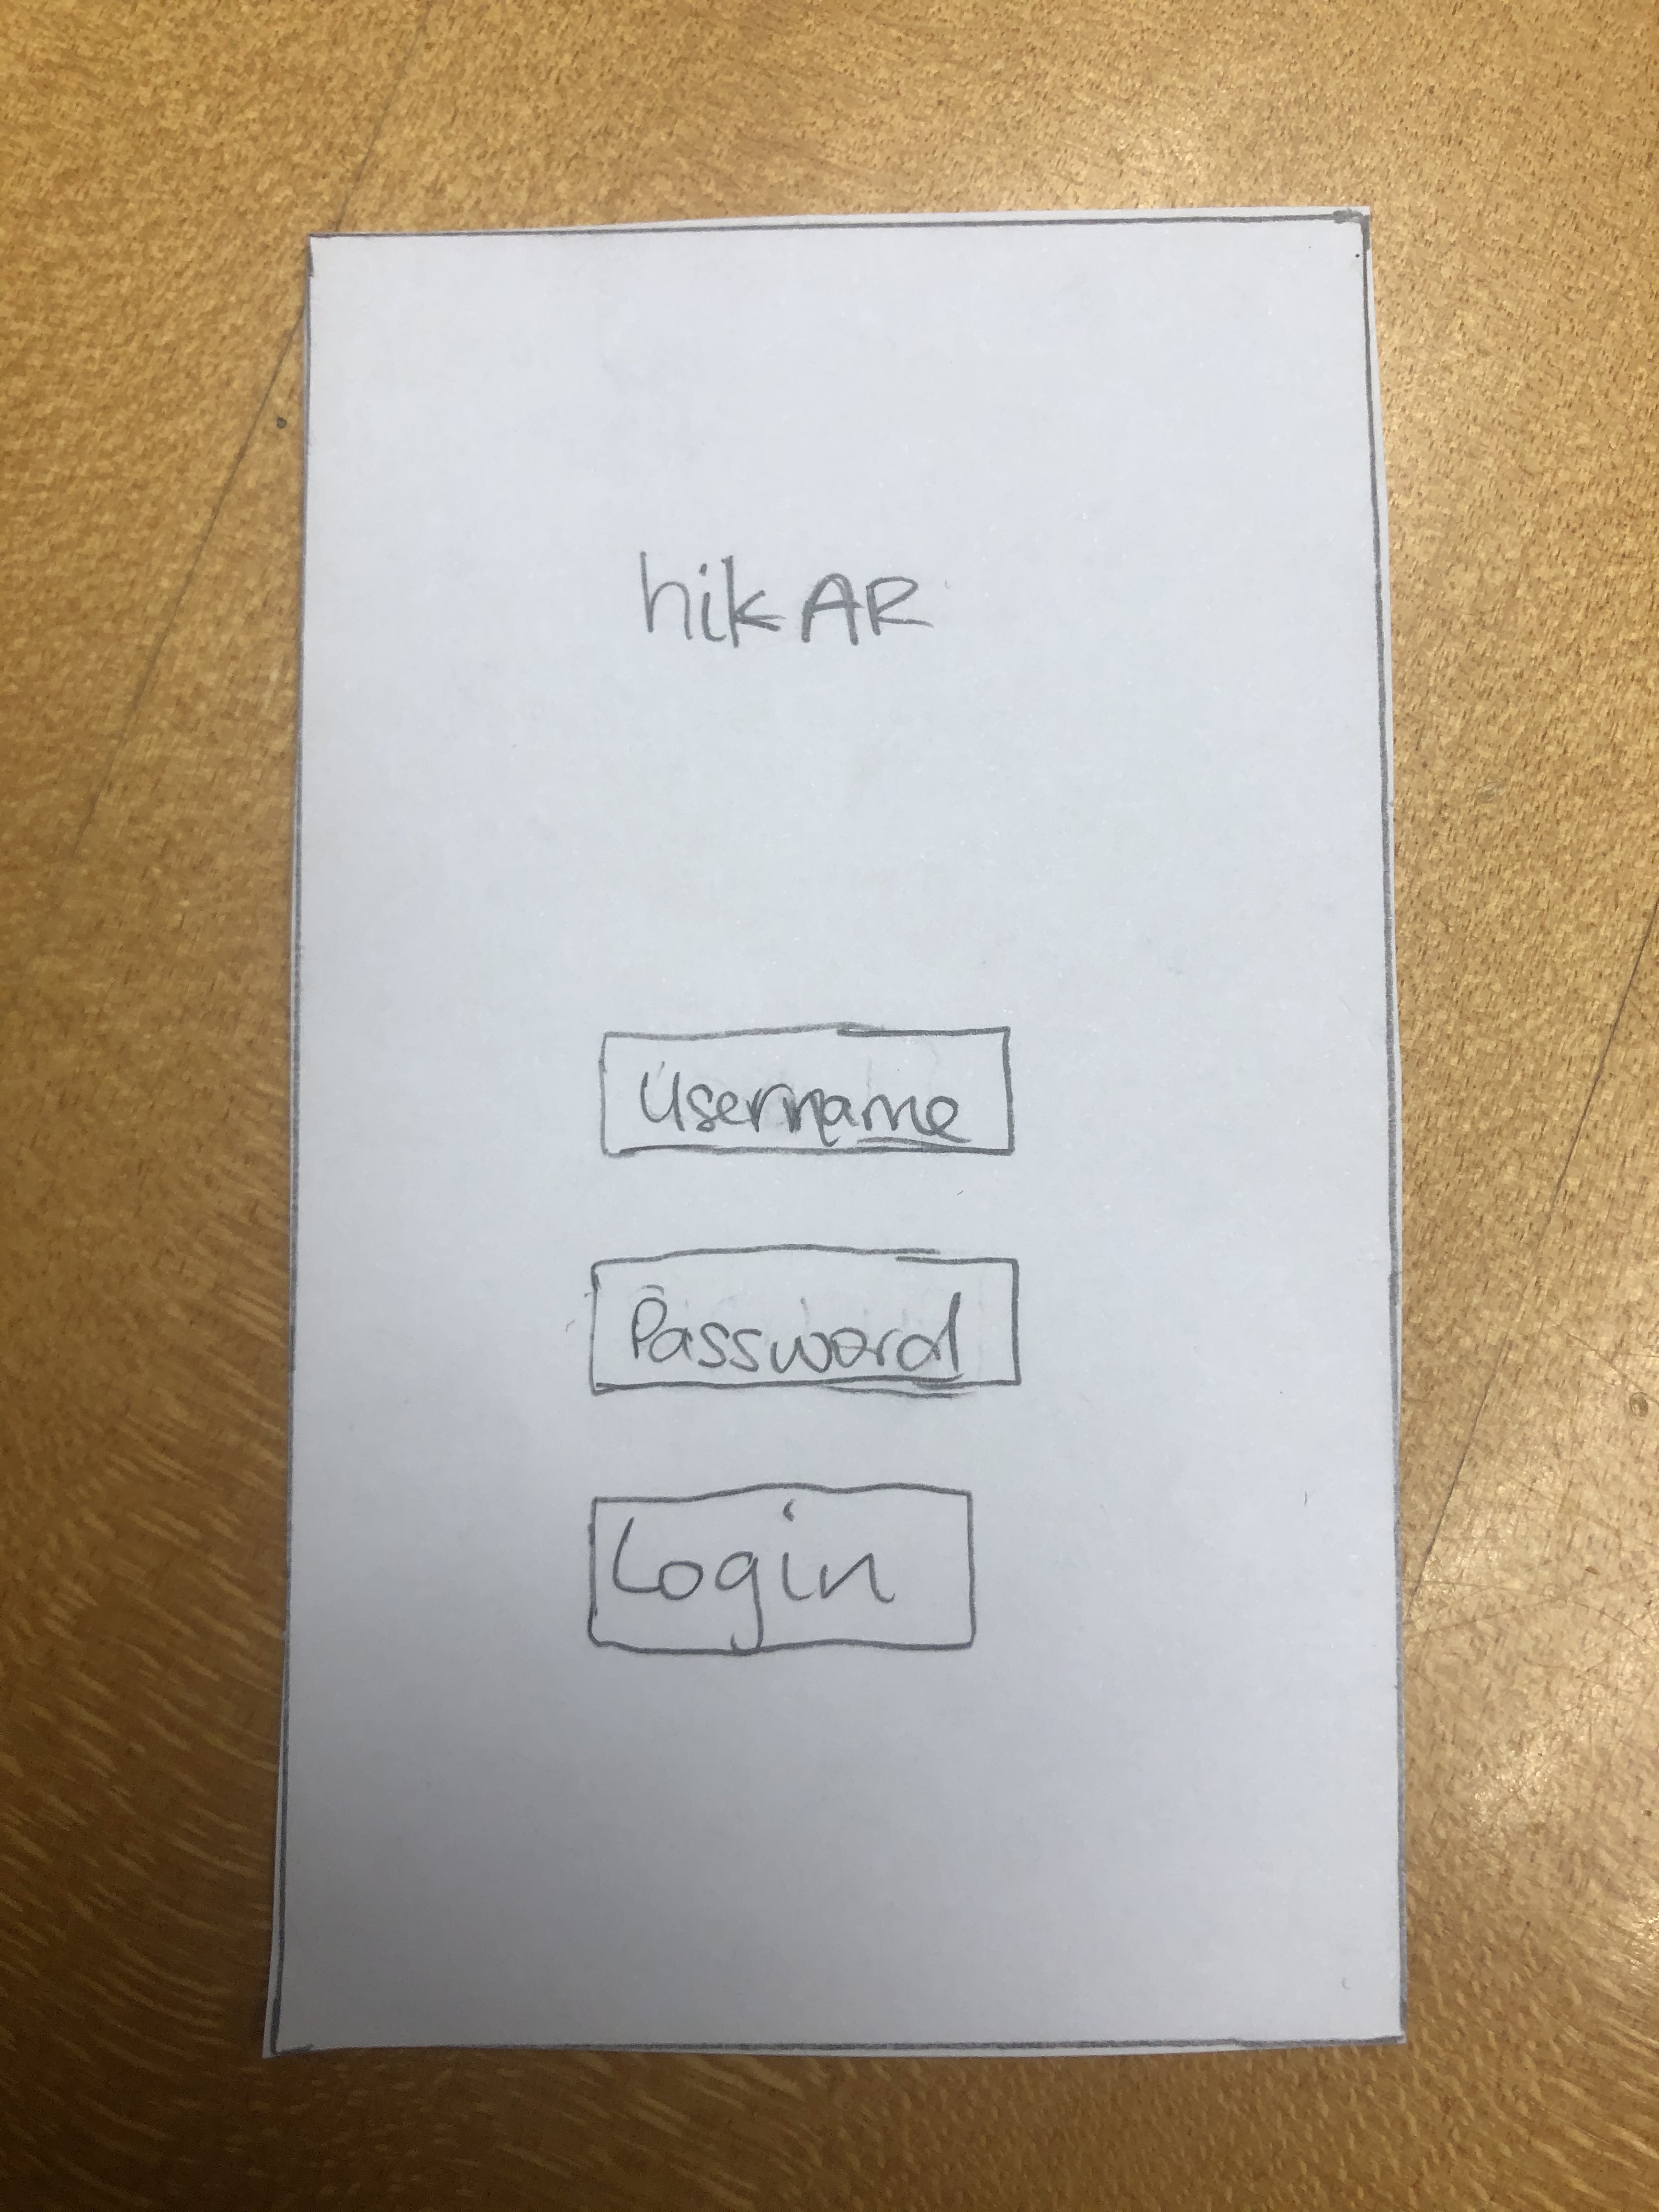 hikAR
Username
Password
Login